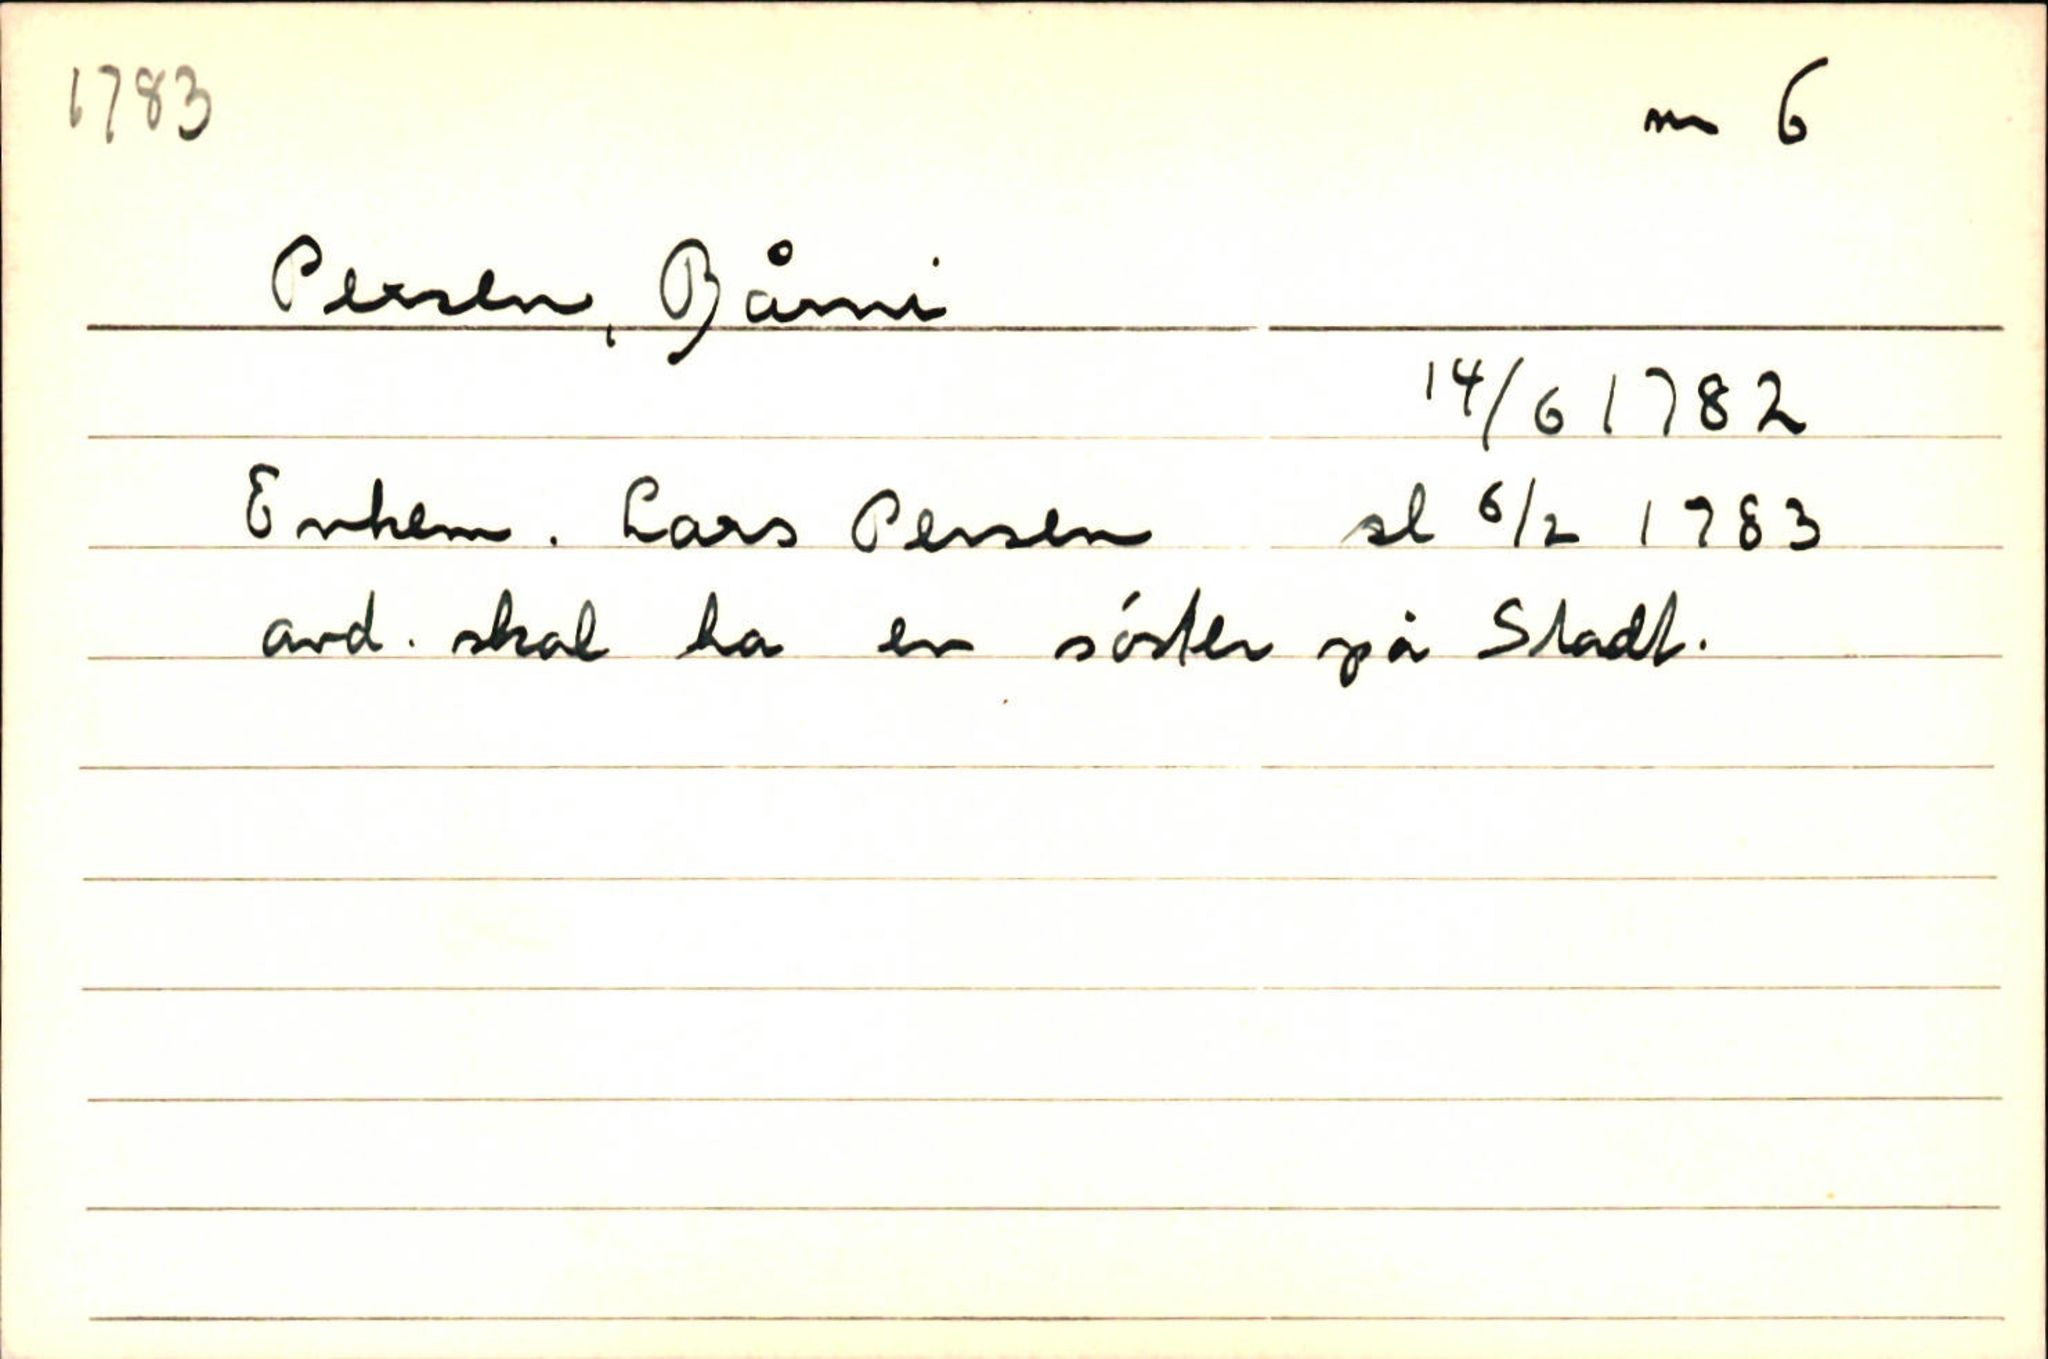 1783 nr 6
Persen, Bårni
14/6 1782
Enkem. Lars Persen sl 6/2 1783
avd. skal ha en söster på Stadt.